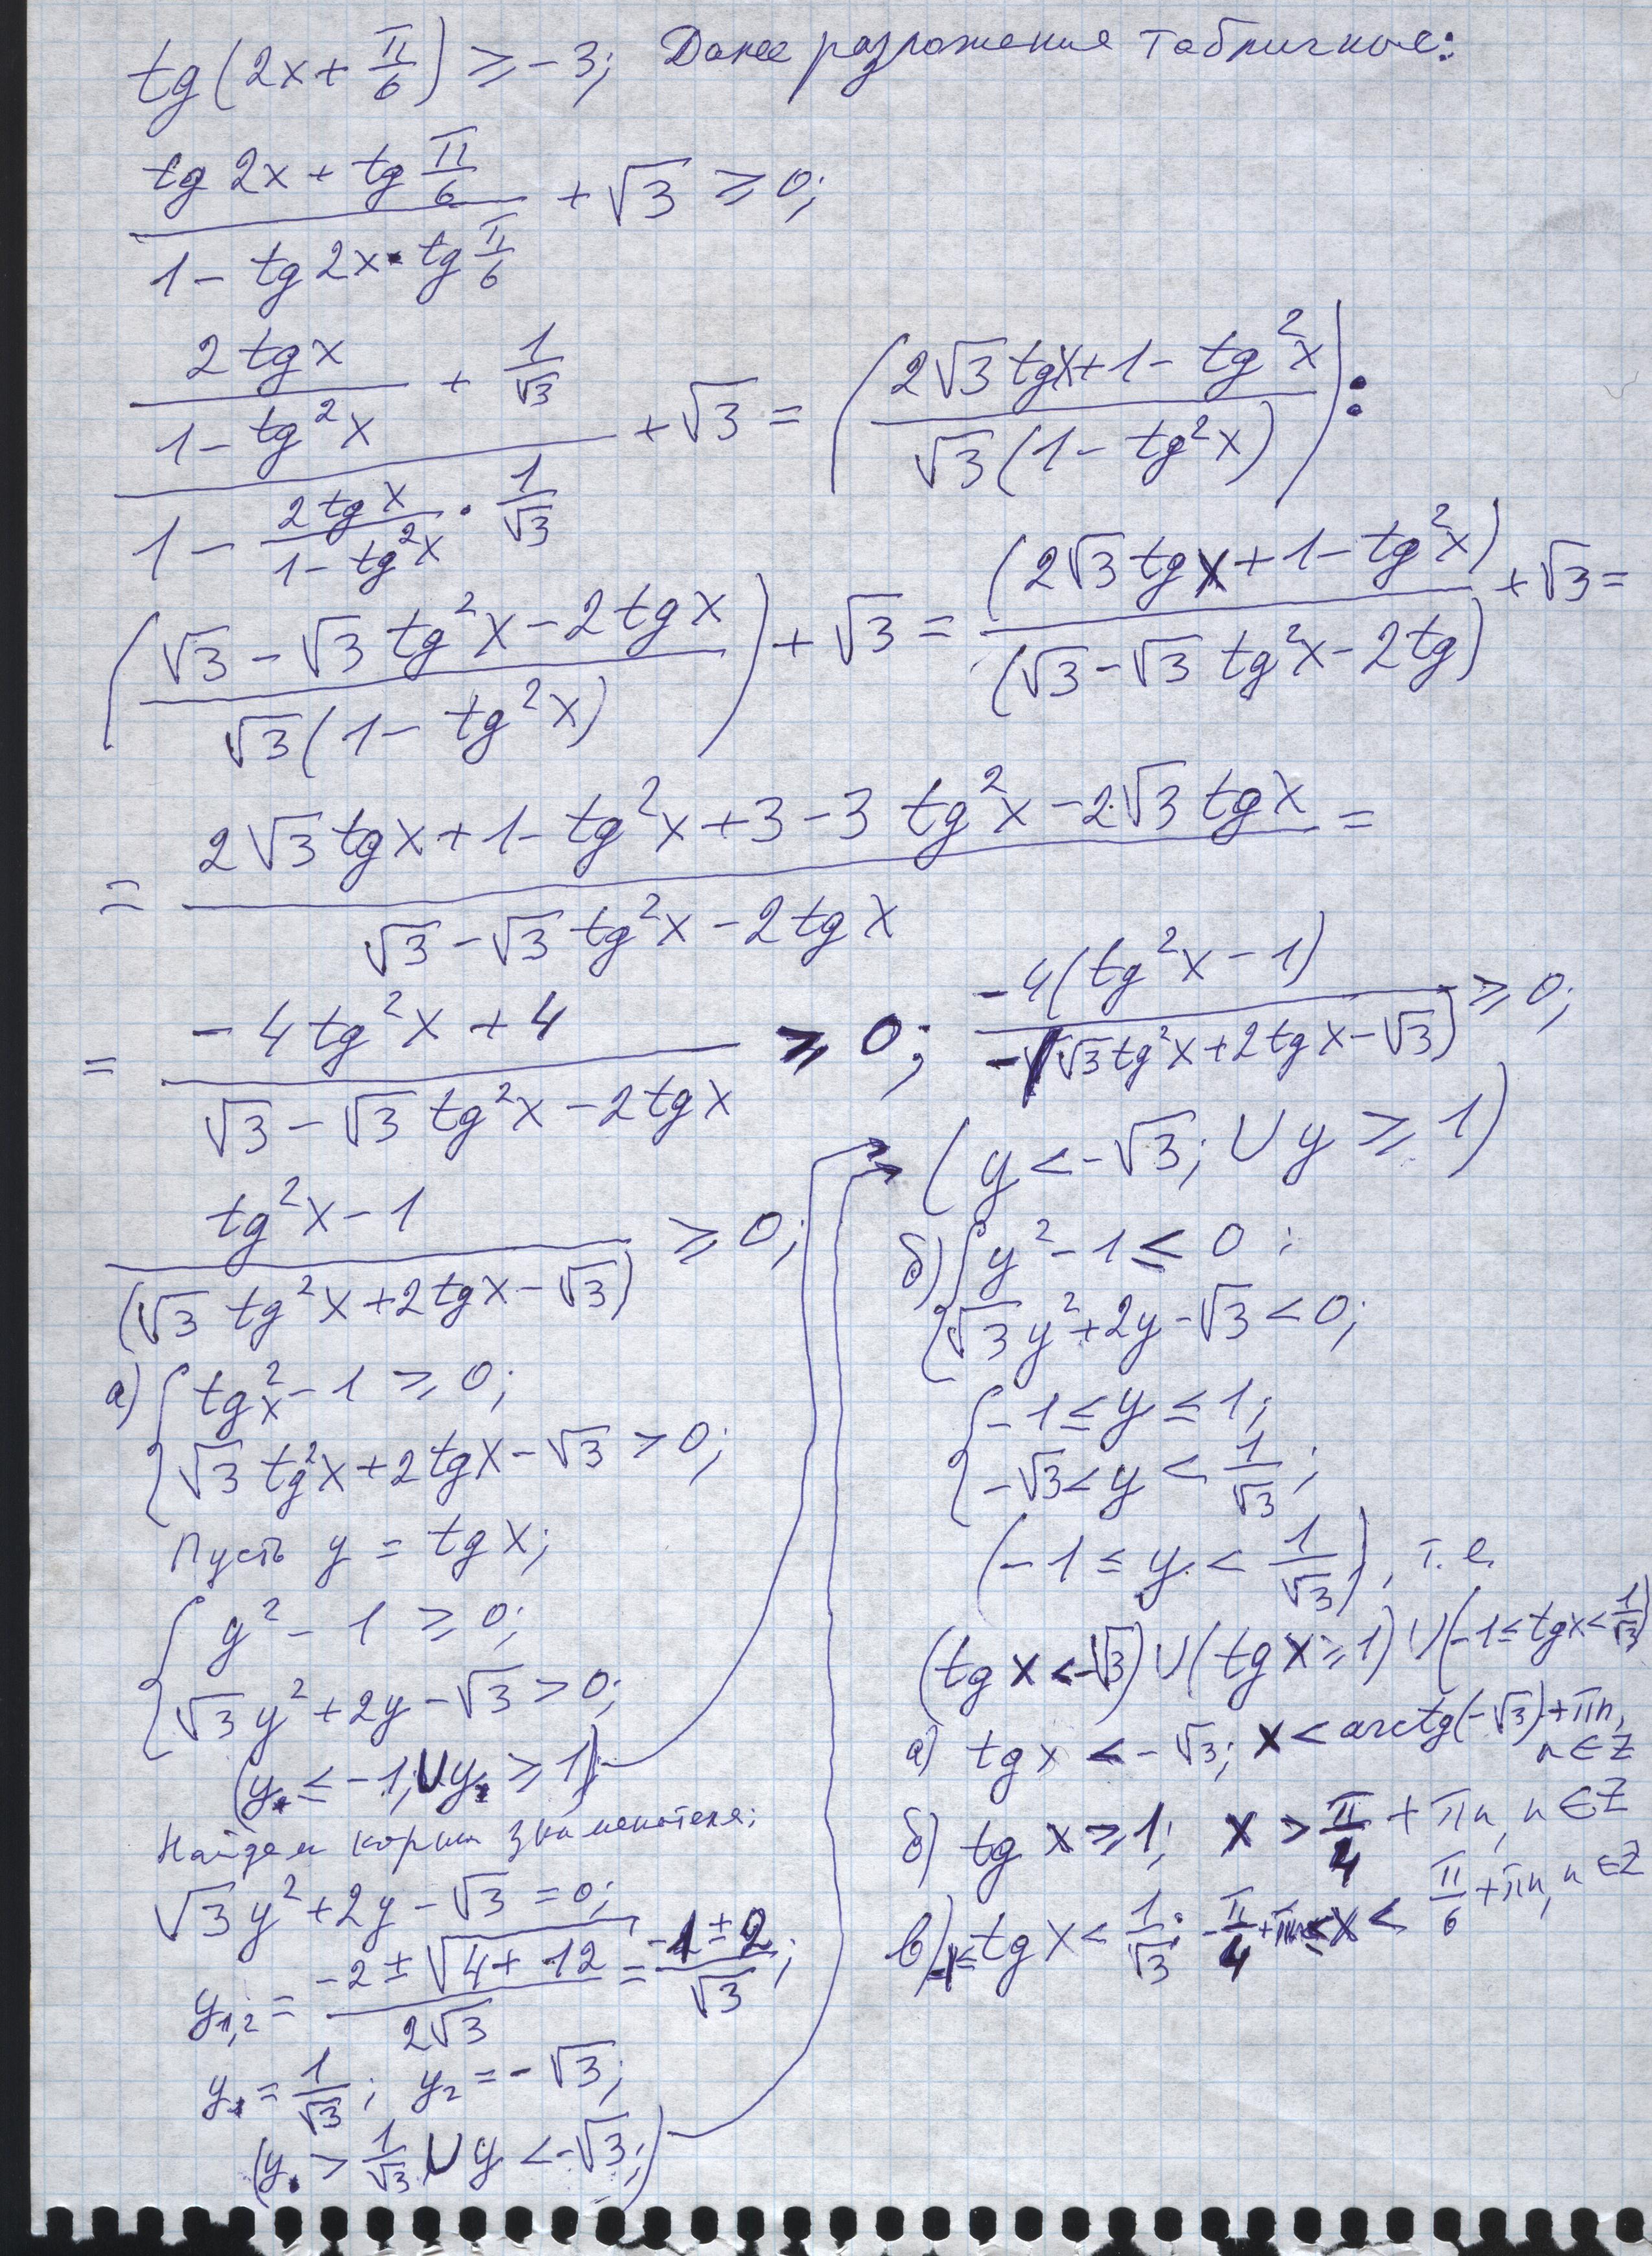 tg(2x + π/6) ≥ -3; Далее разложения табличные:
(tg 2x + tg π/6)/(1 - tg 2x · tg π/6) + √3 ≥ 0;
(2tgx/(1 - tg²x) + 1/√3)/(1 - 2tgx/(1 - tg²x) · 1/√3) + √3 = ((2√3 tgx + 1 - tg²x)/(√3(1 - tg²x))) :
((√3 - √3 tg²x - 2tgx)/(√3(1 - tg²x))) + √3 = (2√3 tgx + 1 - tg²x)/(√3 - √3 tg²x - 2tg) + √3 =
= (2√3 tgx + 1 - tg²x + 3 - 3 tg²x - 2√3 tgx)/(√3 - √3 tg²x - 2tgx) =
= (-4tg²x + 4)/(√3 - √3 tg²x - 2tgx) ≥ 0; -4(tg²x - 1)/-(√3tg²x + 2tgx - √3) ≥ 0;
(tg²x - 1)/(√3 tg²x + 2tgx - √3) ≥ 0;
а) { tg²x - 1 ≥ 0;
√3 tg²x + 2tgx - √3 > 0;
Пусть y = tgx;
{ y² - 1 ≥ 0;
√3y² + 2y - √3 > 0;
(y ≤ -1; ∪ y ≥ 1)
Найдем корни знаменателя:
√3y² + 2y - √3 = 0;
y₁,₂ = (-2 ± √(4 + 12))/(2√3) = (-1 ± 2)/√3;
y₁ = 1/√3; y₂ = -√3;
(y > 1/√3 ∪ y < -√3;)
(y < -√3; ∪ y ≥ 1)
б) { y² - 1 ≤ 0;
√3y² + 2y - √3 < 0;
{ -1 ≤ y ≤ 1;
-√3 < y < 1/√3;
(-1 ≤ y < 1/√3), т.е.
(tgx < -√3) ∪ (tgx ≥ 1) ∪ (-1 ≤ tgx < 1/√3)
а) tgx < -√3; x < arctg(-√3) + πn, n ∈ Z
б) tg x ≥ 1; x > π/4 + πn, n ∈ Z
в) -1 ≤ tgx < 1/√3; -π/4 + πn ≤ x < π/6 + πn, n ∈ Z